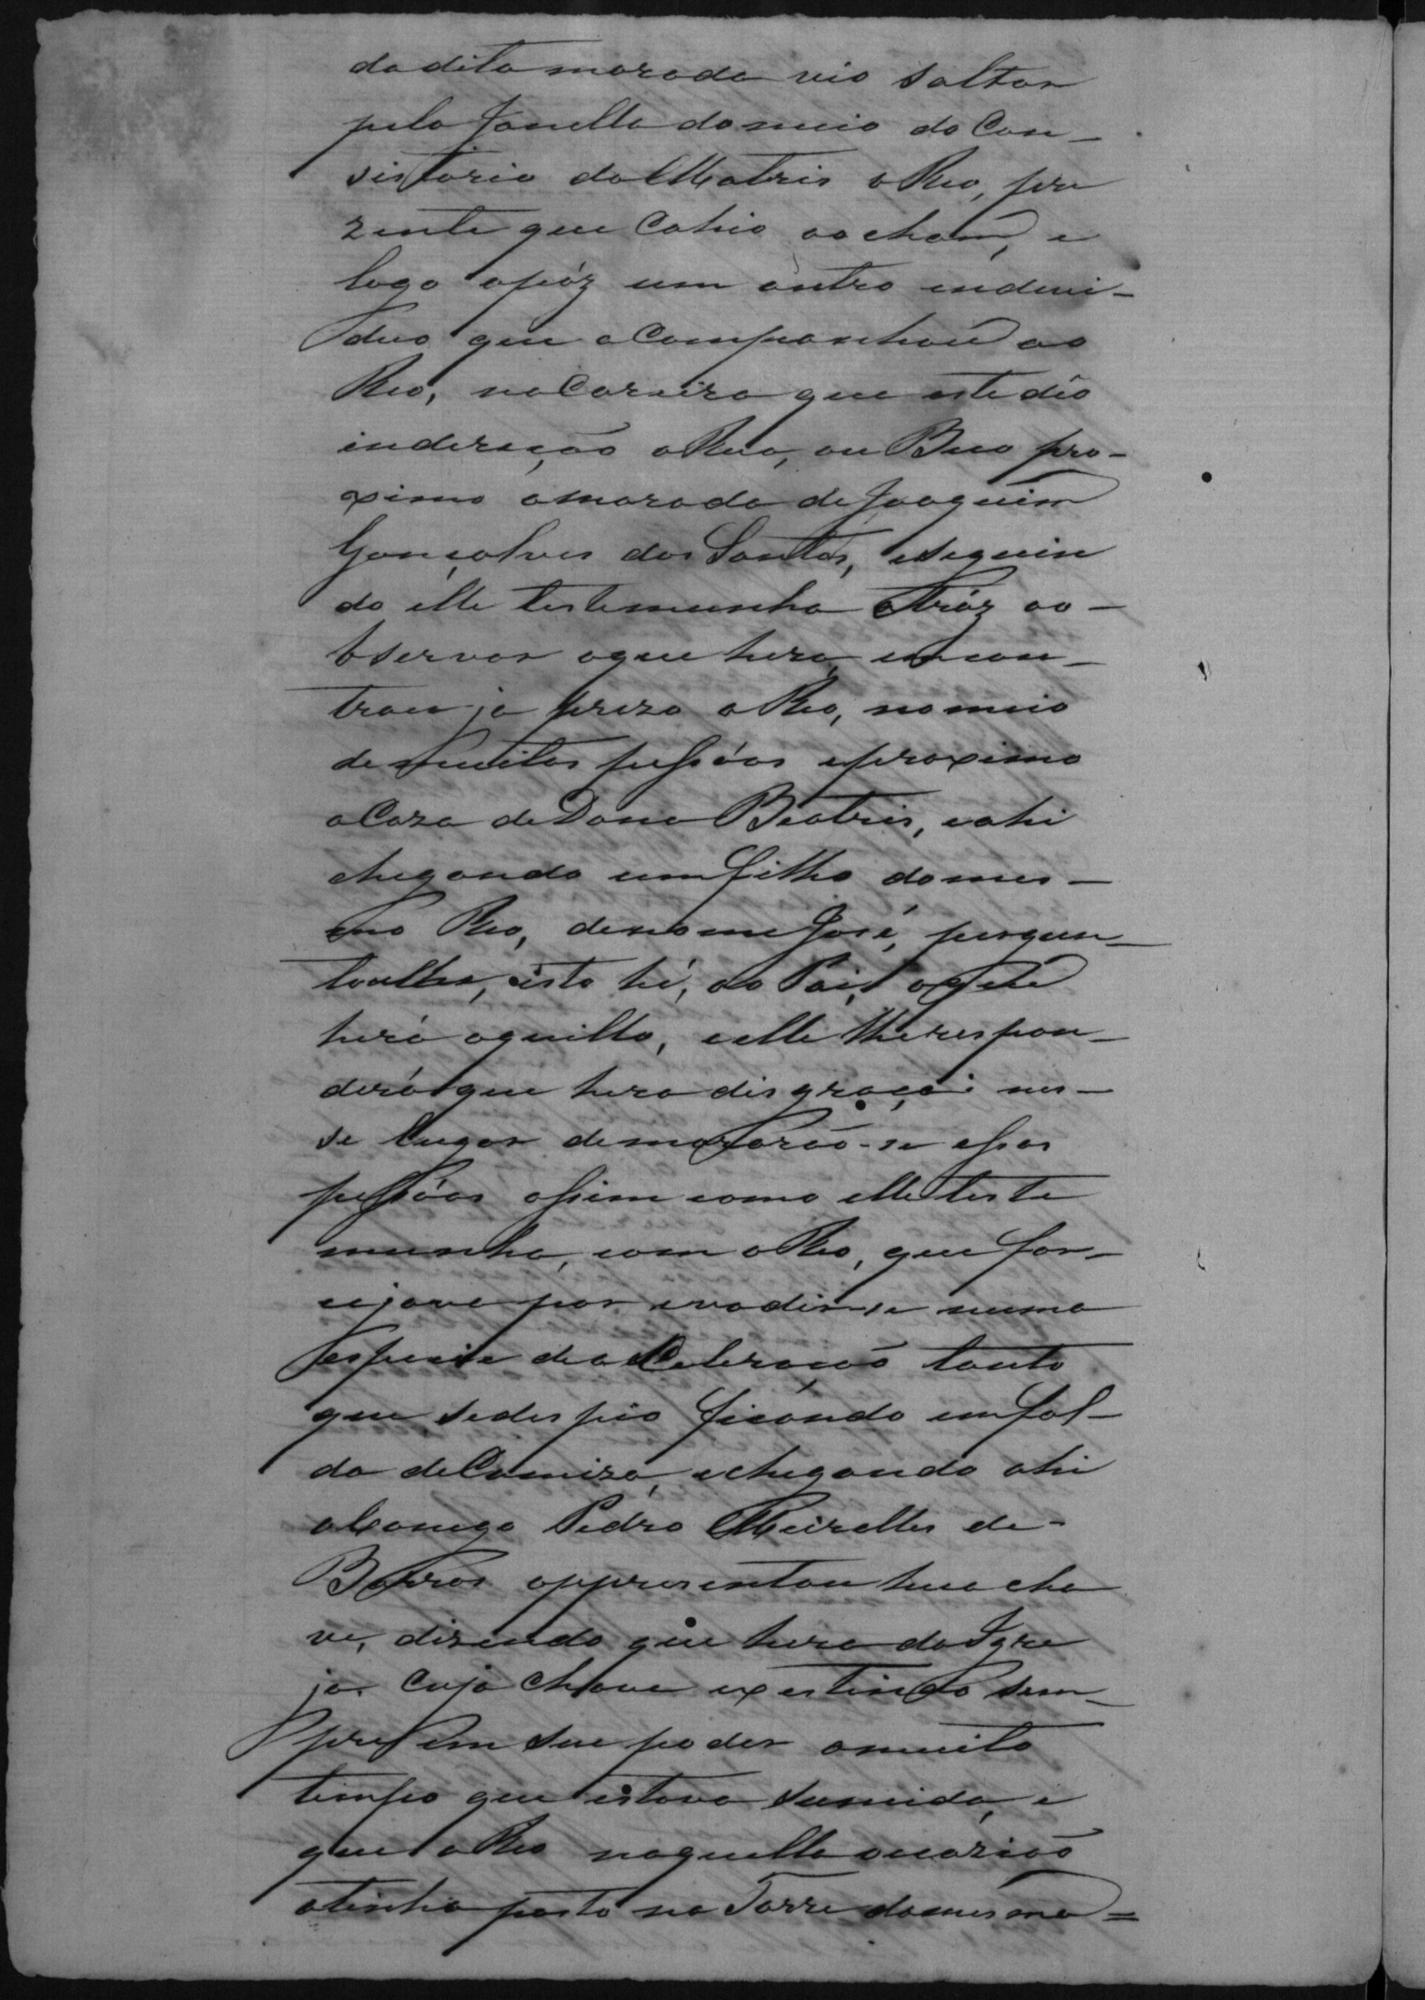 da dita morada vio saltar
pela Janella do meio do Con-
sistorio da Matris o Reo, pre
zente que Cahio ao cham, e
logo apóz um outro endevi-
duo que acompanhou ao
Reo, na Carreira que este déo
indereção a Rua, ou Beco pro-
ximo a morada de Joaquim
Gonçalves dos Santos, e seguin
do elle testemunha atráz ao-
bservar o que hera, encon-
trou ja prezo o Reo, no meio
de muitas pessôas e proximo
a Caza de Dona Beatris, e ahi
chegando um filho do mes-
mo Reo, de nome José, pergun-
toulhe, isto hé, ao Pai, o que
hera aquillo, e elle lhe respon-
dera que hera disgraça: nes-
se lugar demorarão-se essas
pessôas assim como elle teste
munha, com o Reo, que for-
cejava por evadir-se numa
especie de aCeleração tanto
que se despio ficando em fral-
da de Camiza, e chegando ahi
o Conego Pedro Meirelles de-
Barros appresentou hua cha
ve, dizendo que hera da Igre
ja. Cuja Chave existindo sem-
pre em seu poder a muito
tempo que estava sumida, e
que o Reo naquella ocazião
a tinha posto na Torre da mesma=